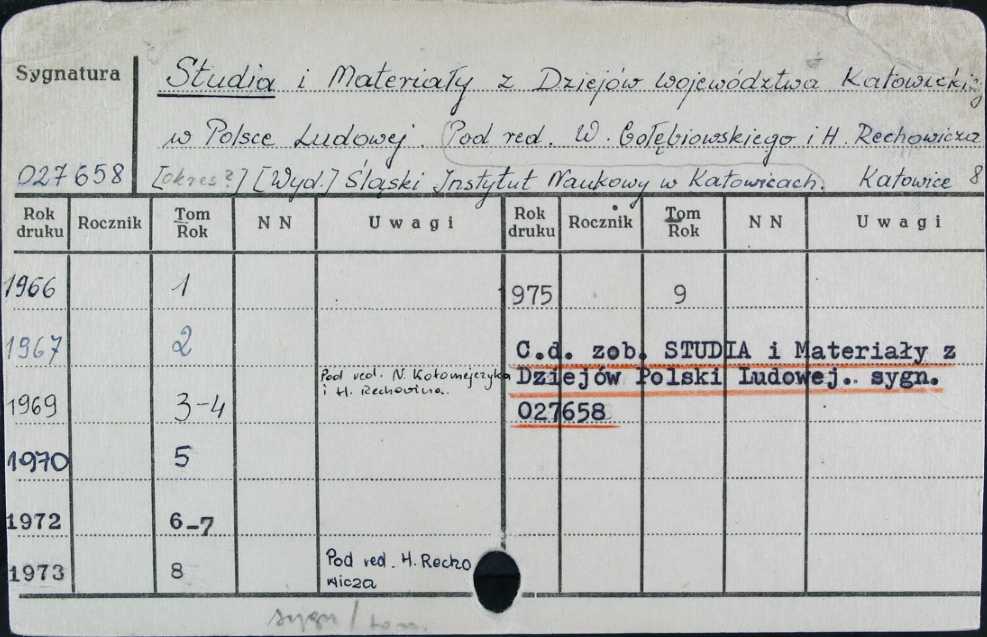 Sygnatura
Studia i Materiały z Dziejów województwa Katowickiego
w Polsce Ludowej. Pod red. W. Gołębiowskiego i H. Rechowicza
027658 [okres?] [Wyd.] Śląski Instytut Naukowy w Katowicach. Katowice 8
Rok druku Rocznik Tom Rok N N Uwagi Rok druku Rocznik Tom Rok N N Uwagi
1966 1 1975 9
1967 2 C.d. zob. STUDIA i Materiały z
Dziejów Polski Ludowej.. sygn.
027658
Pod red. N. Kołomejczyka
i H. Rechowicza.
1969 3-4
1970 5
1972 6-7
1973 8 Pod red. H. Recho
wicza
sygn / tom.